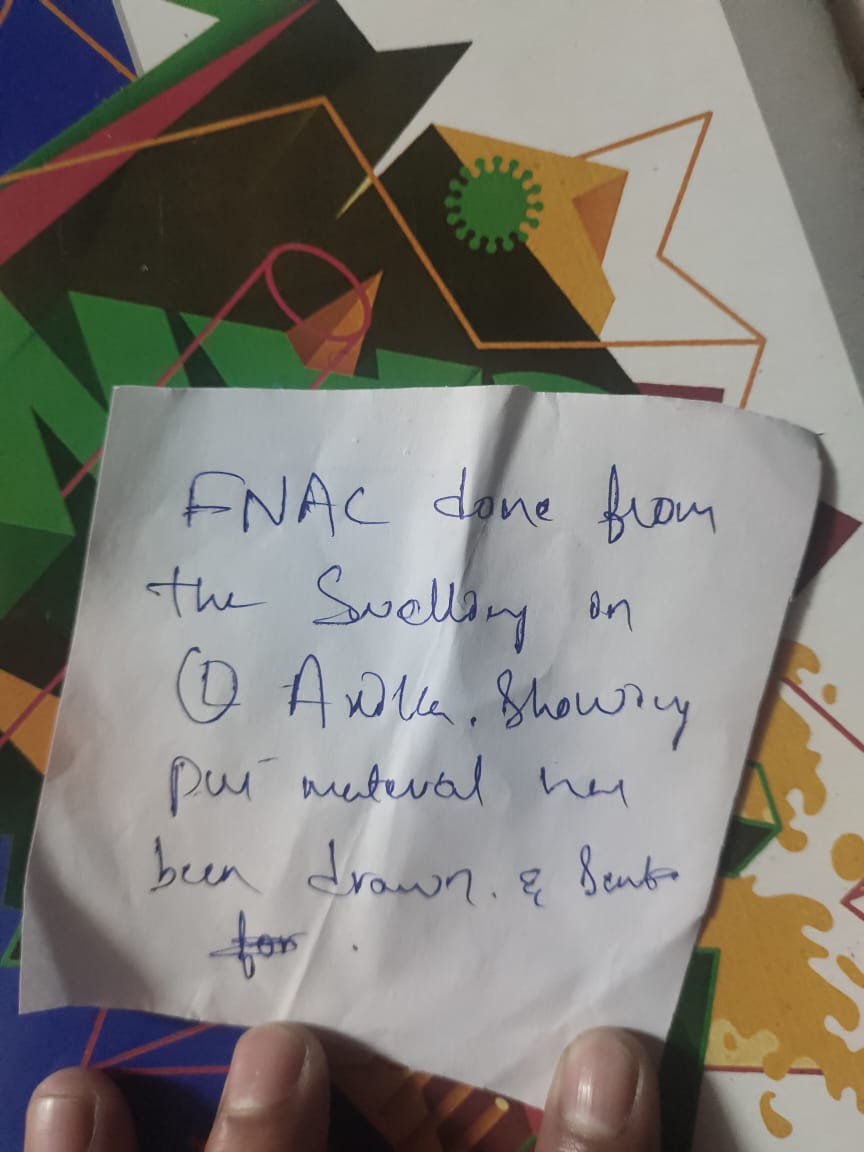 FNAC done from
the Swelling on
Ⓛ Axilla. Showing
pus material has
been drawn. & Sent
for .